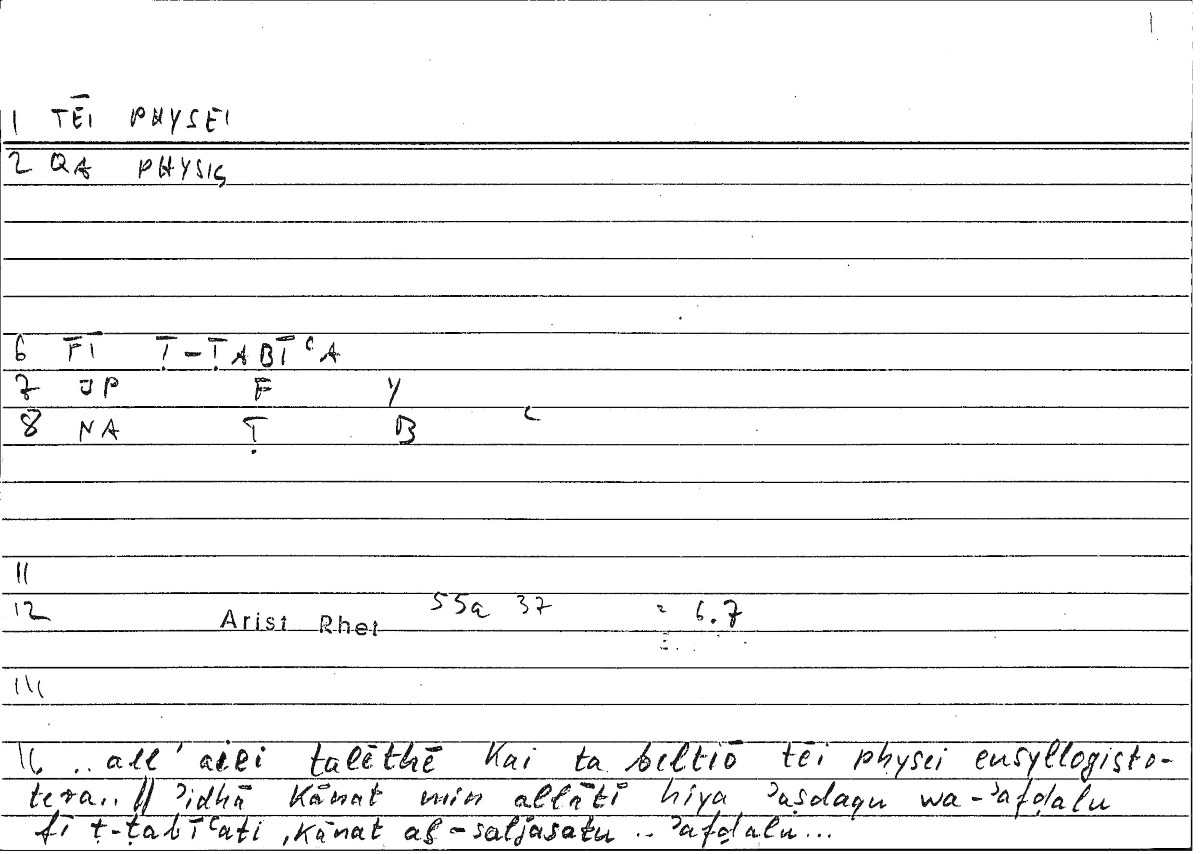 1
1 TĒI PHYSEI
2 QA PHYSIS
6 FĪ Ṭ-ṬABĪʿA
7 JP F Y
8 NA Ṭ B ʿ
11
12 Arist Rhet 55a 37 = 6.7
14
16 .. all' aiei talēthē kai ta beltiō tēi physei eusyllogisto-
tera.. // ʾidhā kānat min allātī hiya ʾaṣdaqu wa-ʾafḍalu
fī ṭ-ṭabīʿati, kānat as-saljasatu .. ʾafḍalu...